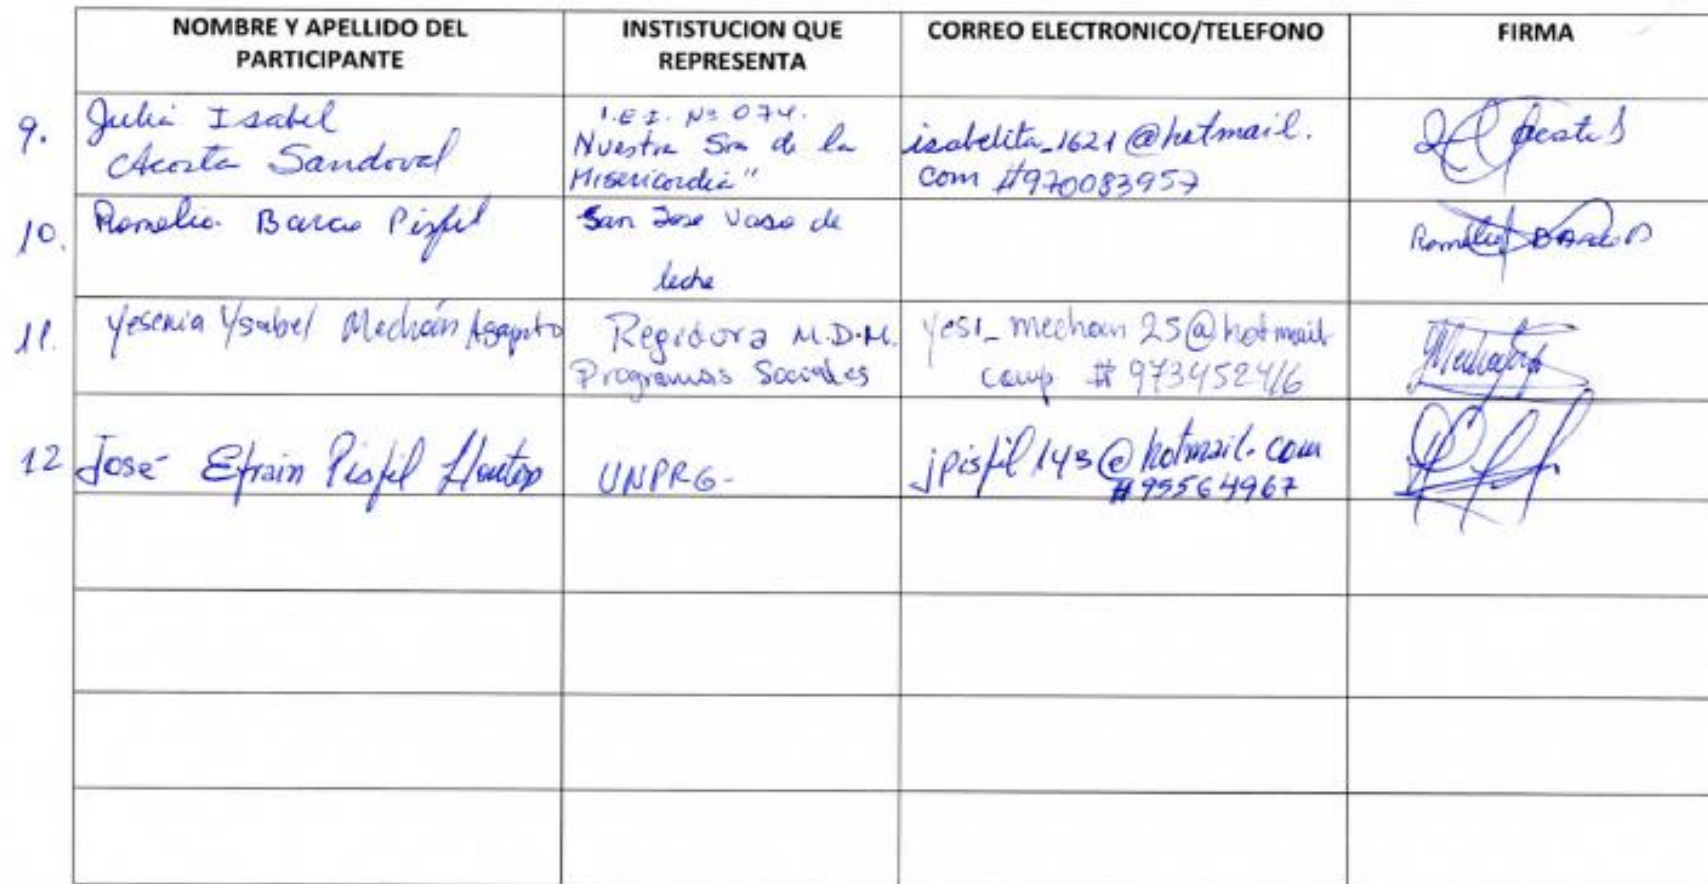 NOMBRE Y APELLIDO DEL
PARTICIPANTE
INSTISTUCION QUE
REPRESENTA
CORREO ELECTRONICO/TELEFONO
FIRMA
9.
Julia Isabel
Acosta Sandoval
I.E.I. Nº 074.
Nuestra Sra de la
Misericordia"
isabelita_1621@hotmail.
com #970083957
Acosta S
10.
Romelia Barco Pisfil
San Jose Vaso de
leche
11.
Yesenia Ysabel Mechán Agapito
Regidora M.D.M.
Programas Sociales
yesi_mechan25@hotmail
# 973452416
12
José Efrain Pisfil Llontop
UNPRG-
jpisfil143@hotmail.com
#95564967